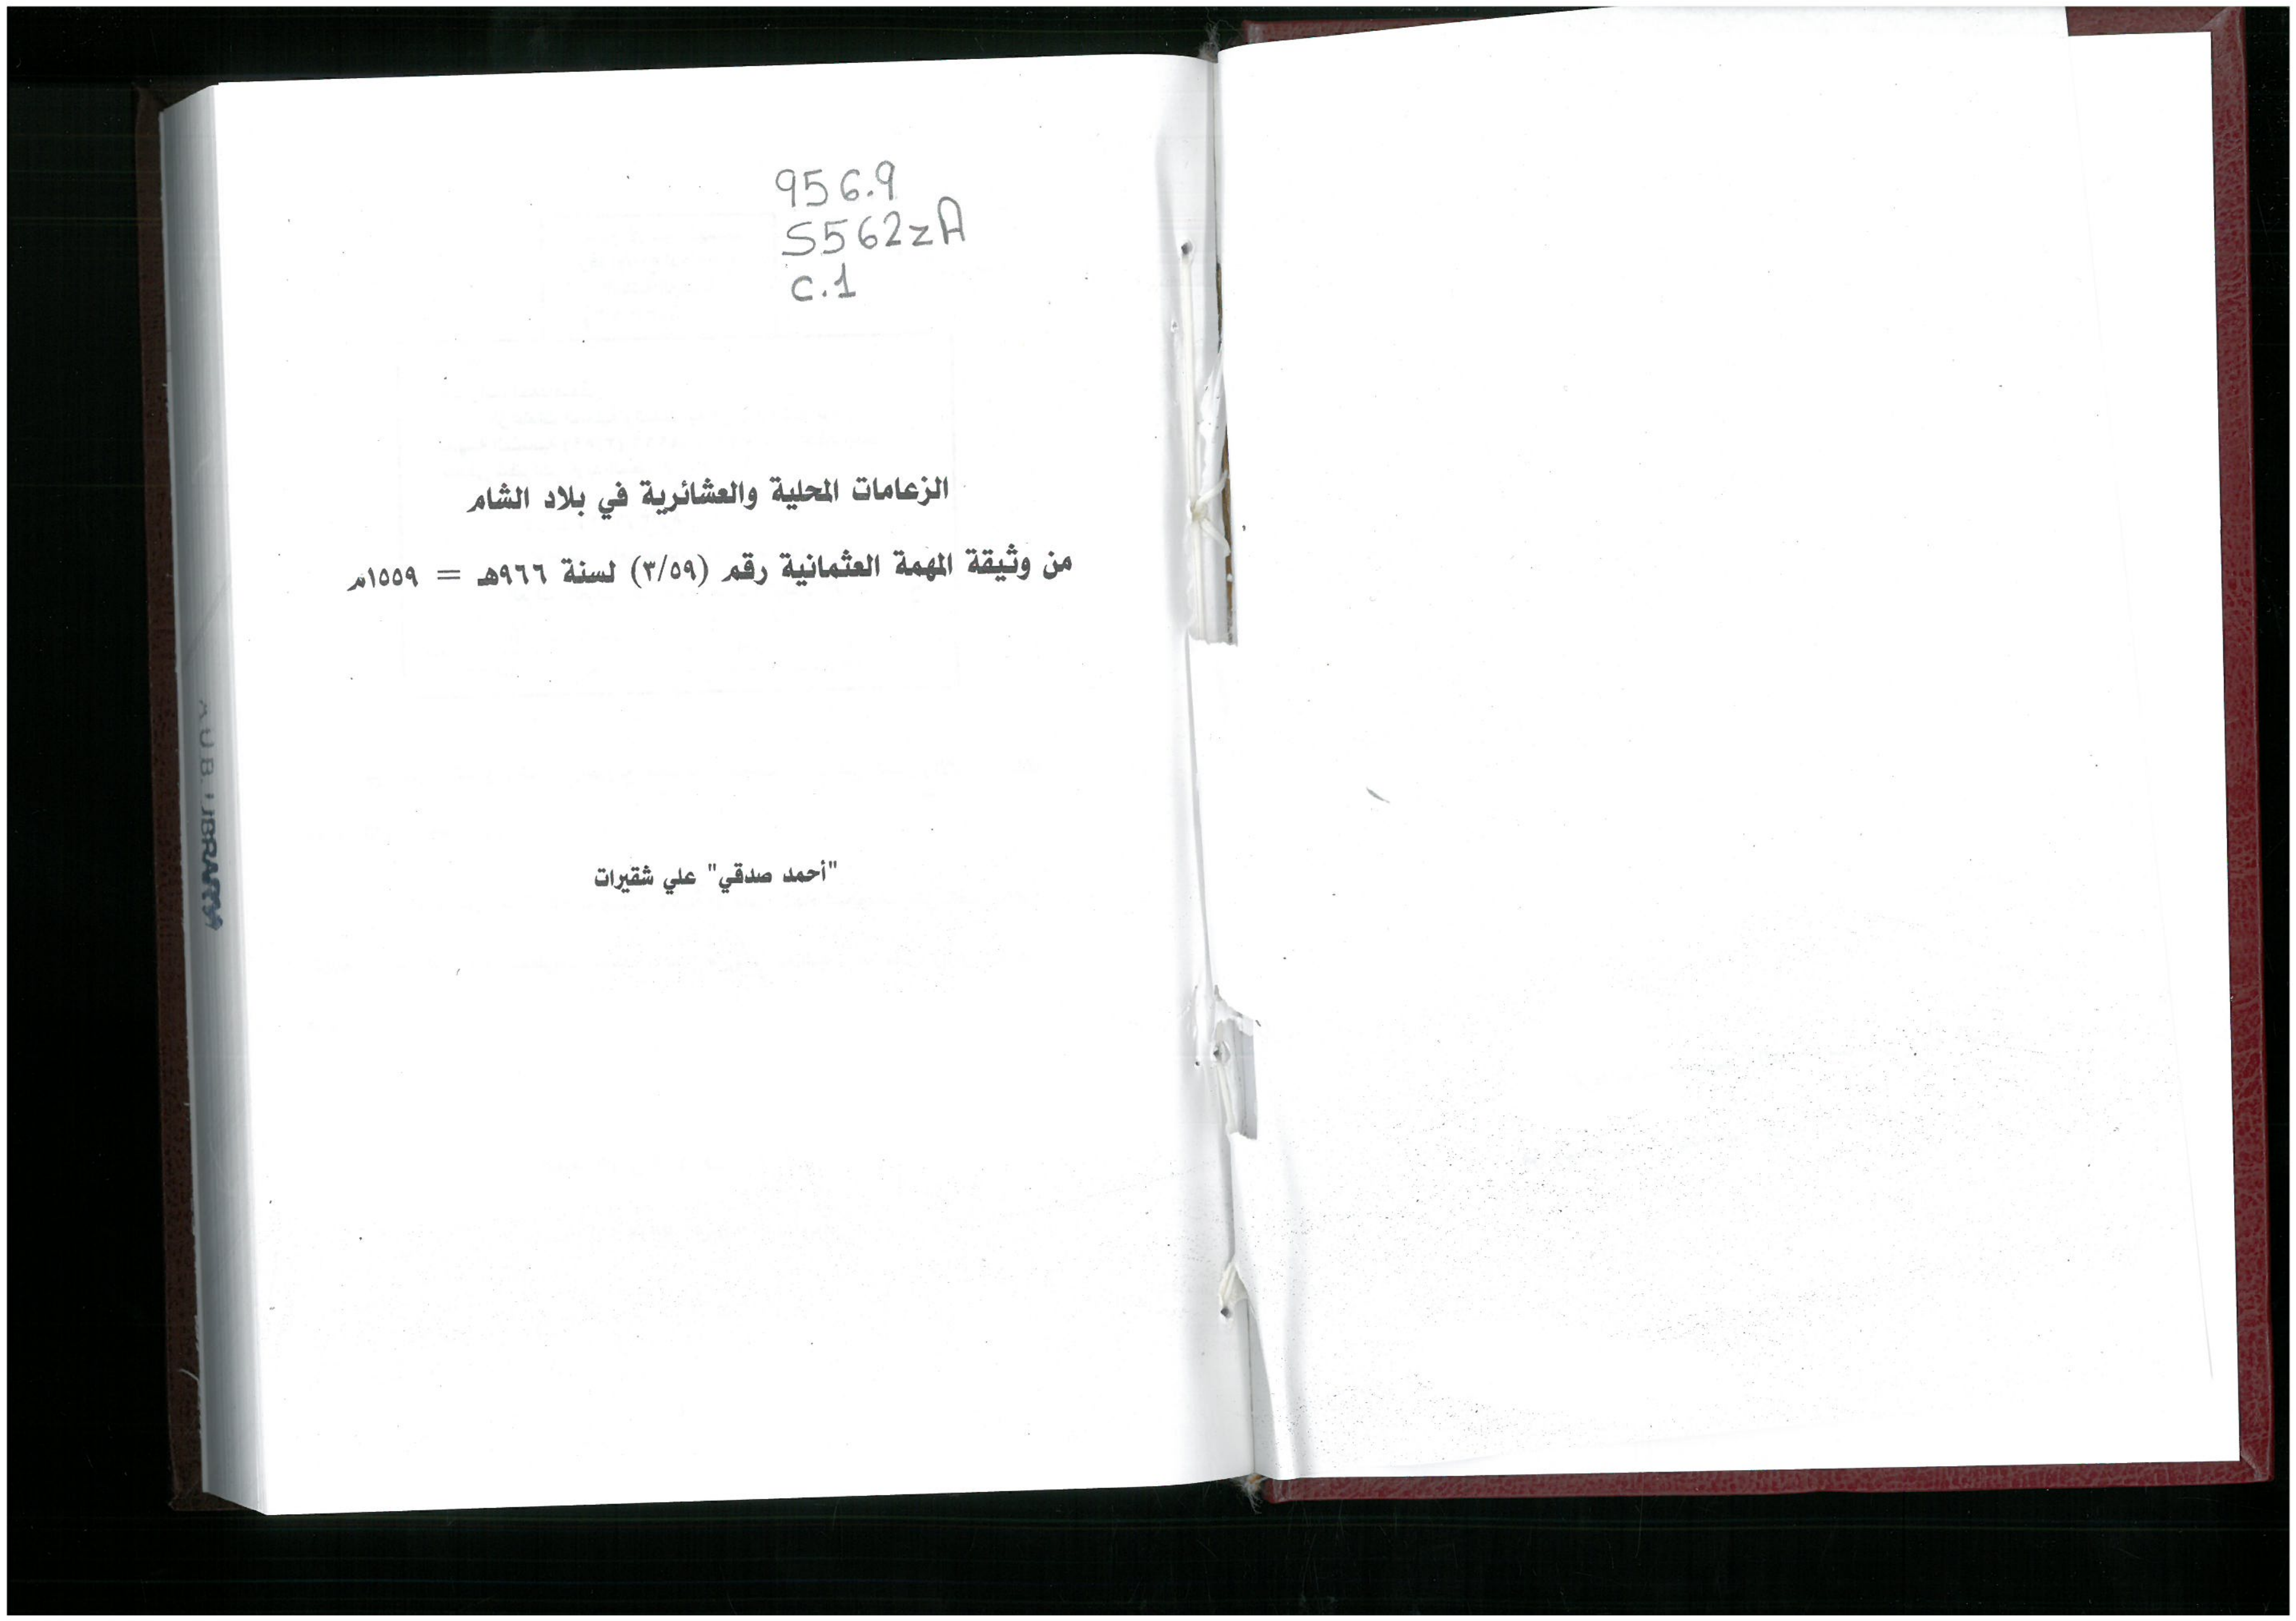 956.9
S562zA
c.1
الزعامات المحلية والعشائرية في بلاد الشام
من وثيقة المهمة العثمانية رقم (٣/٥٩) لسنة ٩٦٦هـ = ١٥٥٩م
"أحمد صدقي" علي شقيرات
A.U.B. LIBRARY